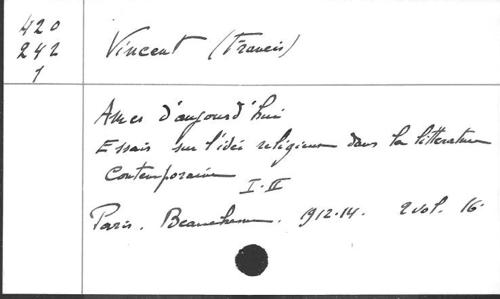 420
242
1
Vincent (Francis)
Ames d'aujourd'hui
Essais sur l'idée religieuse dans la litterature
Contemporaine
I-II
Paris. Beauchesne. 1912-14. 2 vol. 16.